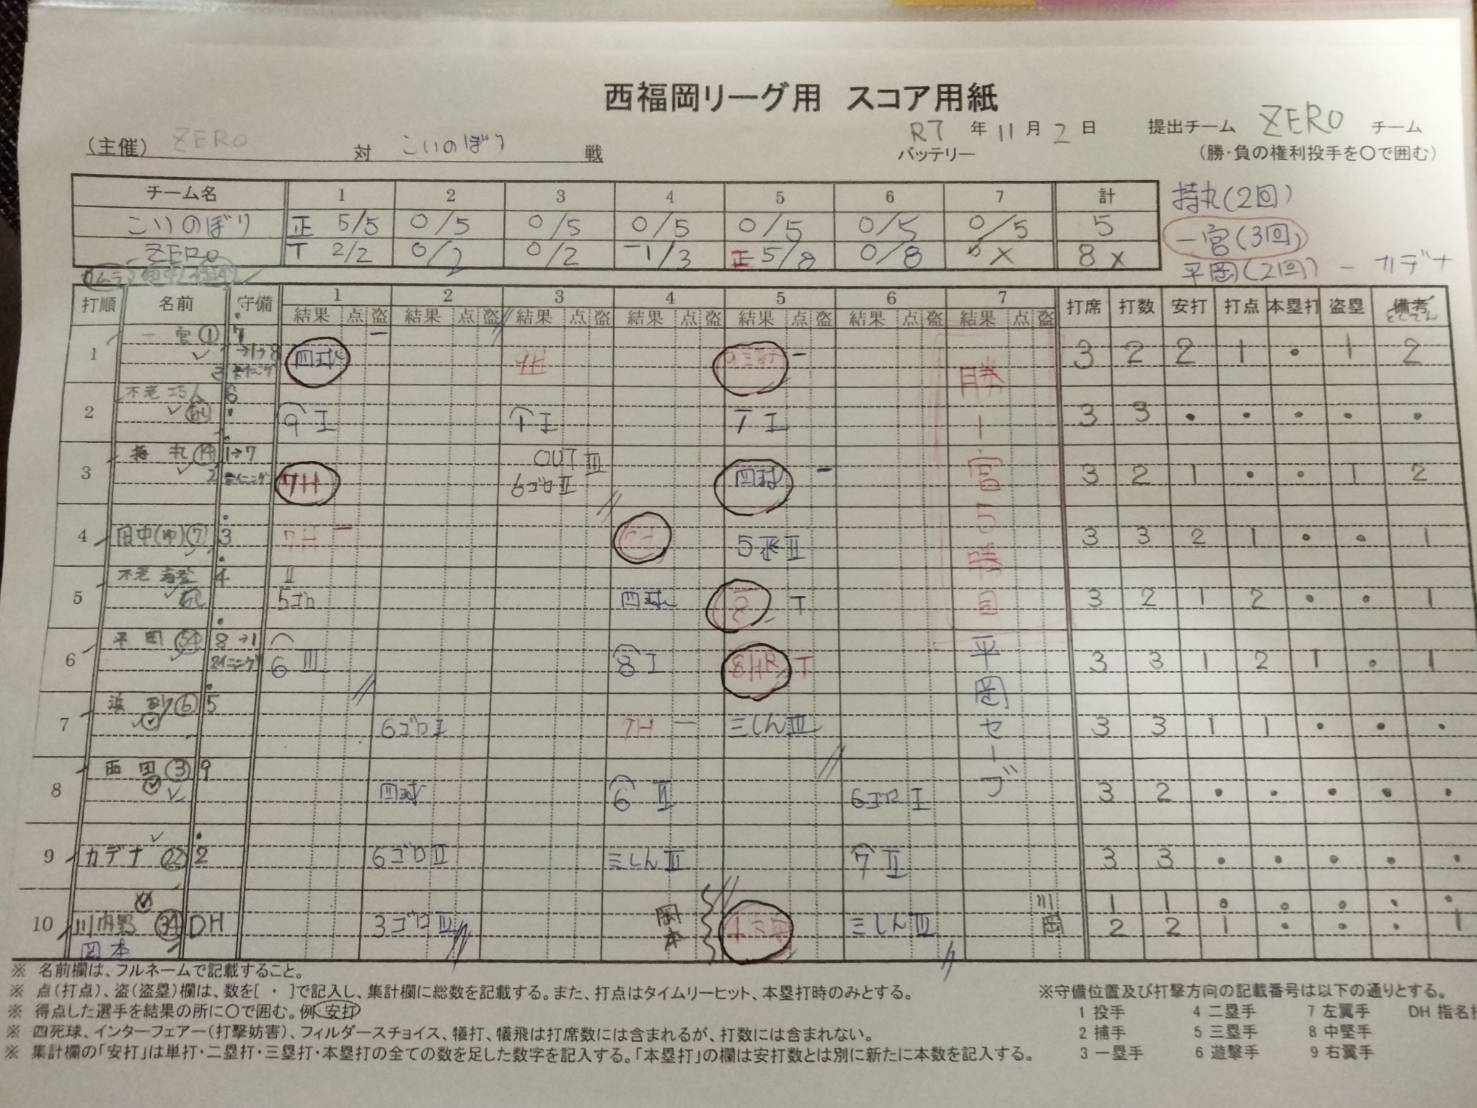 西福岡リーグ用 スコア用紙
(主催) ZERO 対 こいのぼり 戦
R7 年 11 月 2 日 提出チーム ZERO チーム
バッテリー (勝・負の権利投手を○で囲む)
チーム名 1 2 3 4 5 6 7 計
こいのぼり 正 5/5 0/5 0/5 0/5 0/5 0/5 0/5 5
ZERO T 2/2 0/2 0/2 一 1/3 正 5/8 0/8 X 8 X
持丸(2回)
一宮(3回)
平岡(2回) - カデナ
打順 名前 守備 1 2 3 4 5 6 7 打席 打数 安打 打点 本塁打 盗塁 備考
結果 点 盗 結果 点 盗 結果 点 盗 結果 点 盗 結果 点 盗 結果 点 盗 結果 点 盗
1 一宮 ① 7 四球 3 2 2 1 ・ 1 2
2 6 9 I 7 I 3 3 ・ ・ ・ ・ ・
3 持丸 1→7 7H OUT III 6ゴロ II 四球 3 2 1 ・ ・ 1 2
4 田中(ゆ) ⑦ 3 7H 5飛 II 3 3 2 1 ・ ・ 1
5 4 II 5ゴロ 四球 T 3 2 1 2 ・ ・ 1
6 平岡 8→1 6 III 8 I 8HR T 3 3 1 2 1 ・ 1
7 ⑥ 5 6ゴロ I 7H 一 三しん III 3 3 1 1 ・ ・ ・
8 西田 ③ 9 四球 6 II 6ゴロ I 3 2 ・ ・ ・ ・ ・
9 カデナ ㉒ 2 6ゴロ II 三しん III 7 II 3 3 ・ ・ ・ ・ ・
川 1 1 ・ ・ ・ ・ ・
10 川内野 DH 3ゴロ III 岡本 三しん III 岡 2 2 1 ・ ・ ・ 1
岡本
勝 一宮5勝目
平岡セーブ
※ 名前欄は、フルネームで記載すること。
※ 点(打点)、盗(盗塁)欄は、数を[ ・ ]で記入し、集計欄に総数を記載する。また、打点はタイムリーヒット、本塁打時のみとする。
※ 得点した選手を結果の所に○で囲む。例 安打
※ 四死球、インターフェアー(打撃妨害)、フィルダースチョイス、犠打、犠飛は打席数には含まれるが、打数には含まれない。
※ 集計欄の「安打」は単打・二塁打・三塁打・本塁打の全ての数を足した数字を記入する。「本塁打」の欄は安打数とは別に新たに本数を記入する。
※守備位置及び打撃方向の記載番号は以下の通りとする。
1 投手 4 二塁手 7 左翼手 DH 指名打
2 捕手 5 三塁手 8 中堅手
3 一塁手 6 遊撃手 9 右翼手